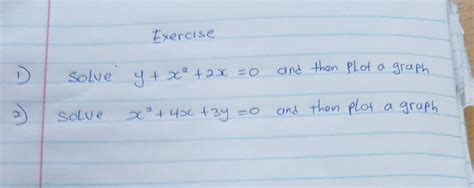 Exercise
1) solve y + x² + 2x = 0 and then plot a graph
2) solve x² + 4x + 3y = 0 and then plot a graph